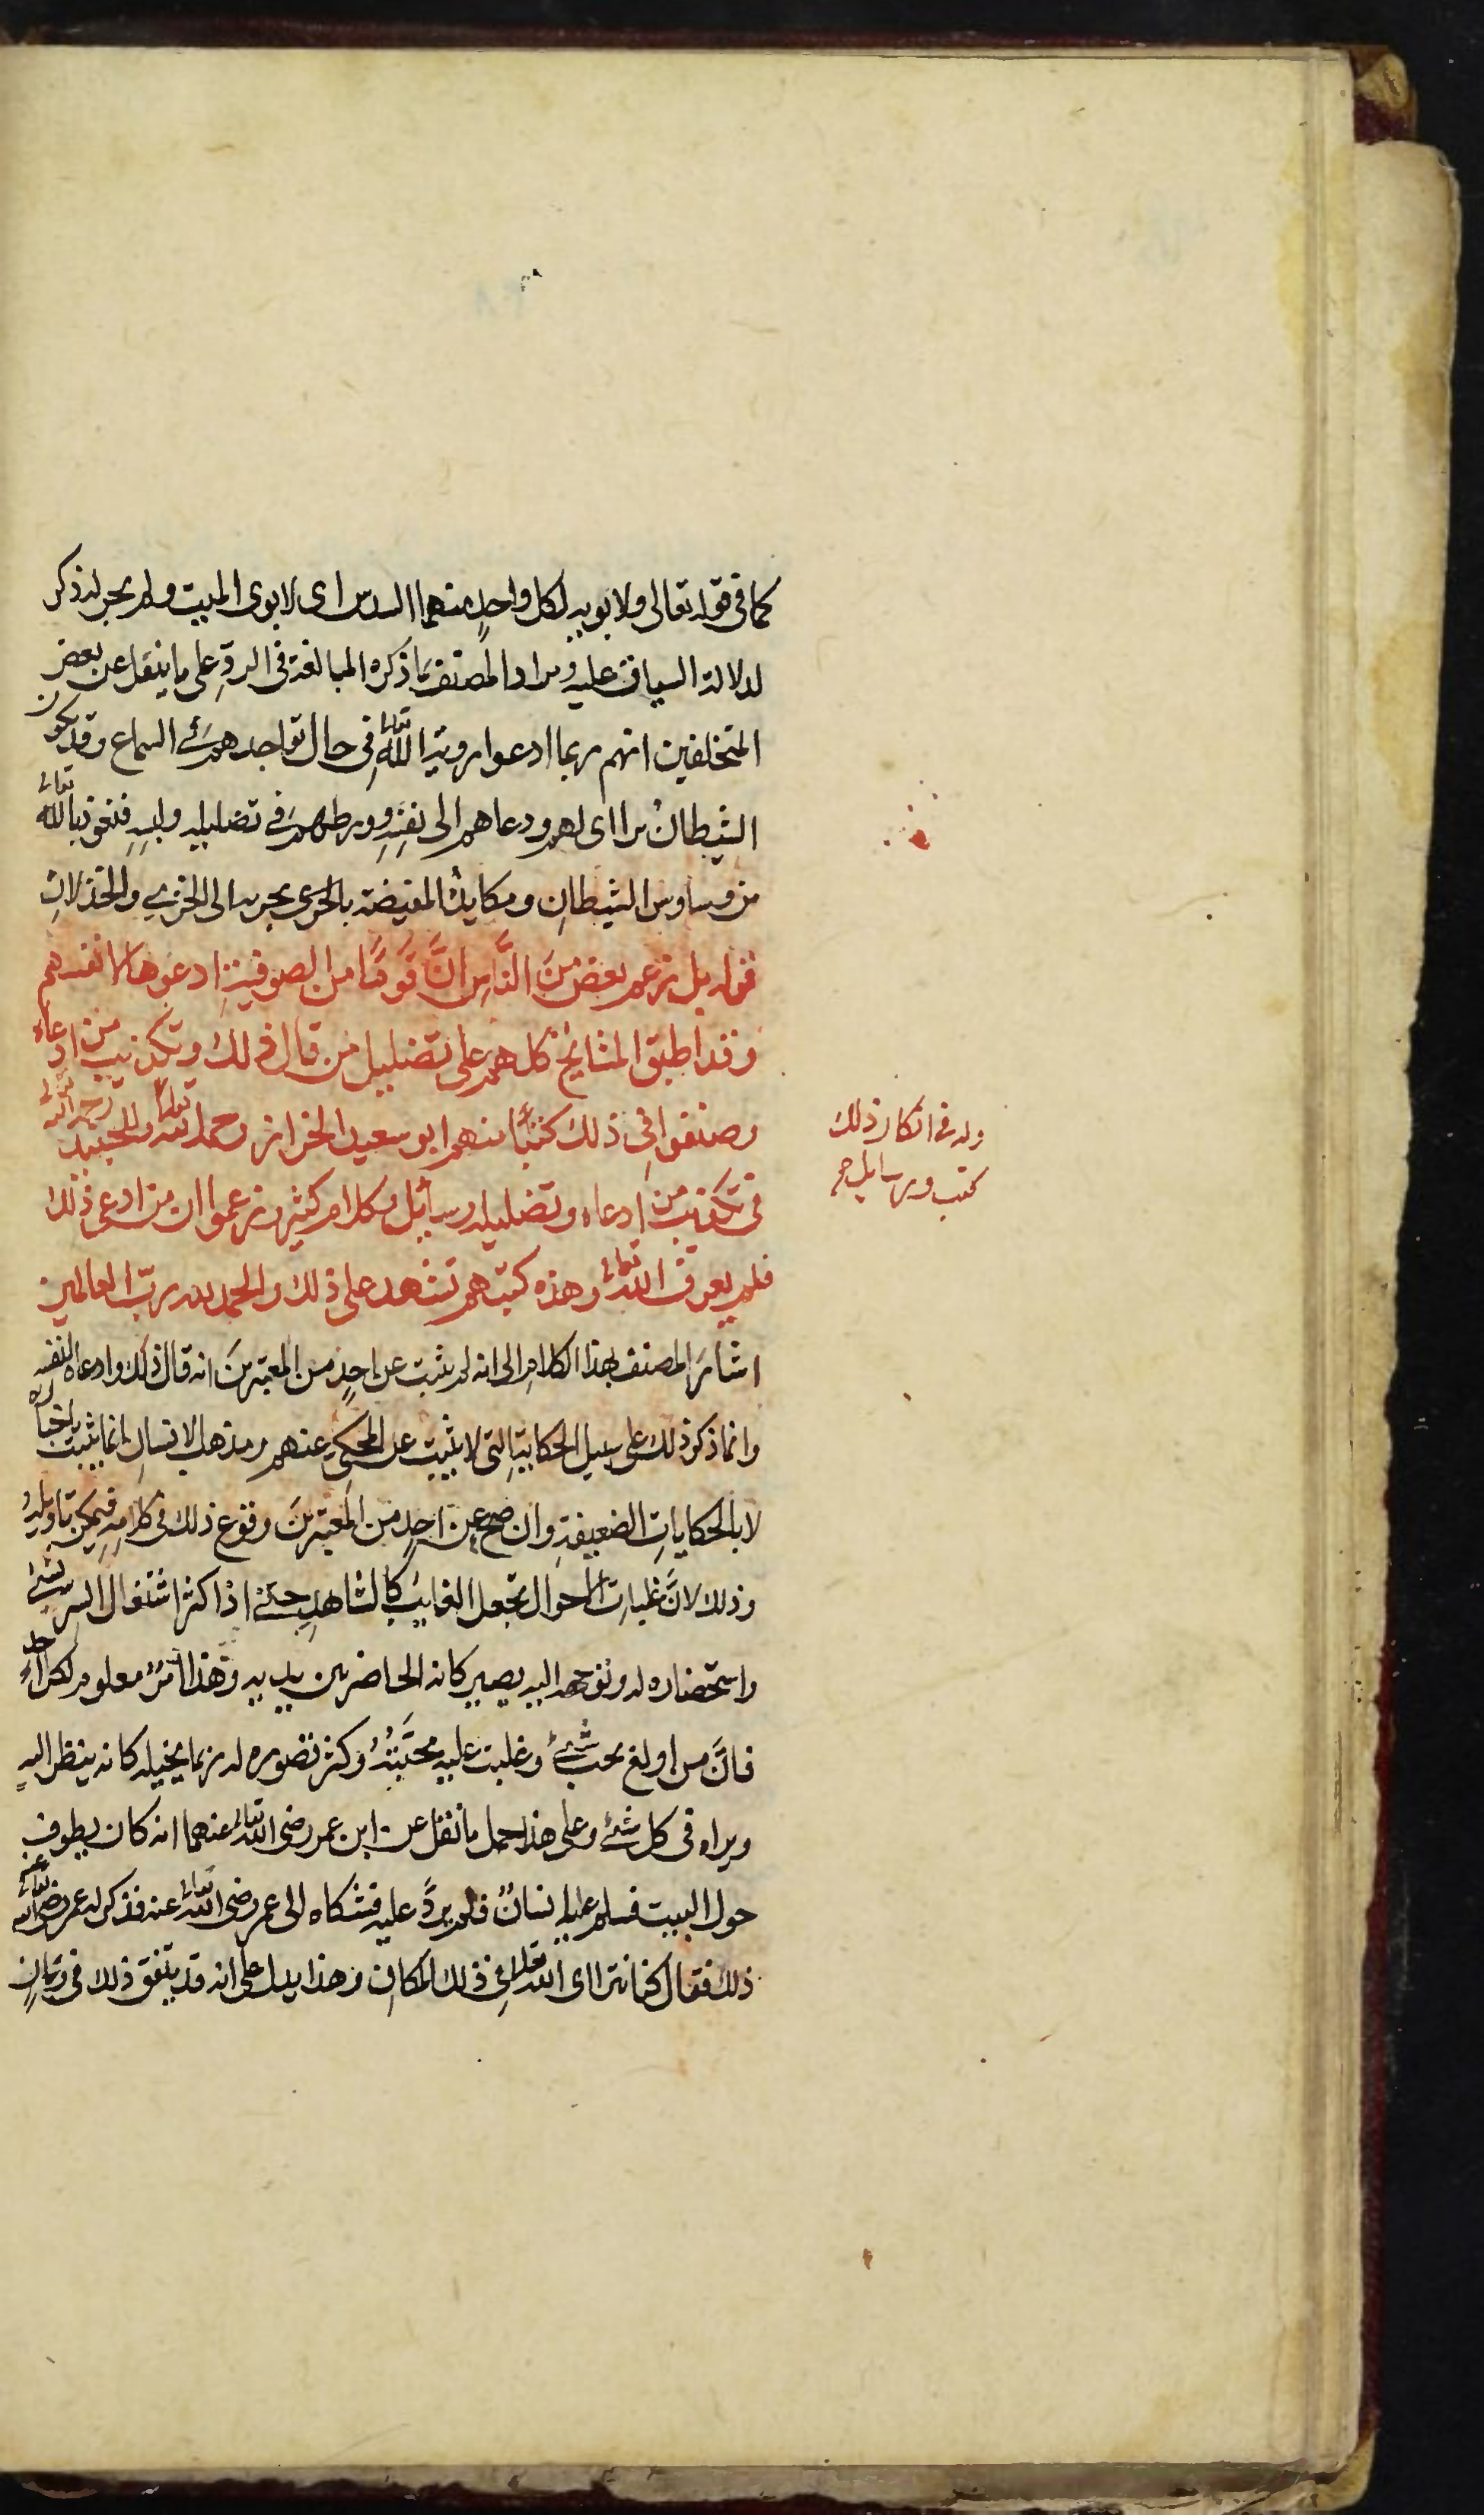 كما فى قوله تعالى ولابويه لكل واحدٍ منهما السدس اى لابوى الميت ولم يجر له ذكر
لدلالة السياق عليه ومراد المصنف بما ذكره المبالغة فى الردِّ على ما ينقل عن بعض
المتخلفين انهم ربما ادعوا روية اللهِ تعالى فى حال تواجدهم فى السماع وقد يكون
الشيطانُ تراأى لهم ودعاهم الى نفسِهِ وورطهم فى تضليله ولبسِهِ فنعوذ بالله تعالى
من وساوس الشيطانِ ومكايده المفيضة بالحرى بحربه الى الخزىِ والخذلانِ
قوله بل زعم بعض منَ النَّاسِ انَّ قَومًا من الصوفيةِ ادعوها لانفسهم
وقد اطبق المشايخ كلهم على تضليل من قال ذلك وتكذيب من ادعاه
وصنفوا فى ذلك كتبًا منهم ابو سعيد الخراز رحمه الله تعالى وللجنيد رحمه الله تعالى
فى تكذيب من ادعاه وتضليله رسائل وكلام كثير وزعموا ان من ادعى ذلك
فلم يعرف الله تعالى وهذه كتبهم تشهد على ذلك والحمد لله رب العالمين
وله فى انكار ذلك
كتب ورسايل صح
اشارَ المصنف بهذا الكلامِ الى انه لم يثبت عن احدٍ من المعتبرينَ انه قال ذلك وادعاه لنفسه
وانما ذكر ذلك على سبيل الحكايةِ التى لا يثبت عن المحكىِ عنهم ومذهب الانسانِ انما يثبت باخباره
لا بالحكاياتِ الضعيفةِ وان صح عن احدٍ من المعتبرينَ وقوع ذلك فى كلامِهِ فيمكن تاويلهُ
وذلك لانَّ غلبات الاحوال تجعل الغايب كالشاهدِ حتى اذا كثر اشتغال السر بشىء
واستحضاره له وتوجهه اليه يصير كانه الحاضر بين يديه وهذا امرٌ معلوم لكل احدٍ
فانَّ من اولع بحب شىءٍ وغلبت عليه محبَّتُهُ وكثر تصوره له ربما يخيله كانه ينظر اليهِ
ويراه فى كل شىءٍ وعلى هذا حمل ما نقل عن ابن عمر رضى الله تعالى عنهما انه كان يطوف
حول البيت فسلم عليه انسانٌ فلم يردَّ عليه فشكاه الى عمر رضى الله تعالى عنه فذكر له عمر رضى الله تعالى عنه
ذلك فقال كنا نتراأى الله تعالى فى ذلك المكانِ وهذا يدل على انه قد يتفق ذلك فى زمانٍ